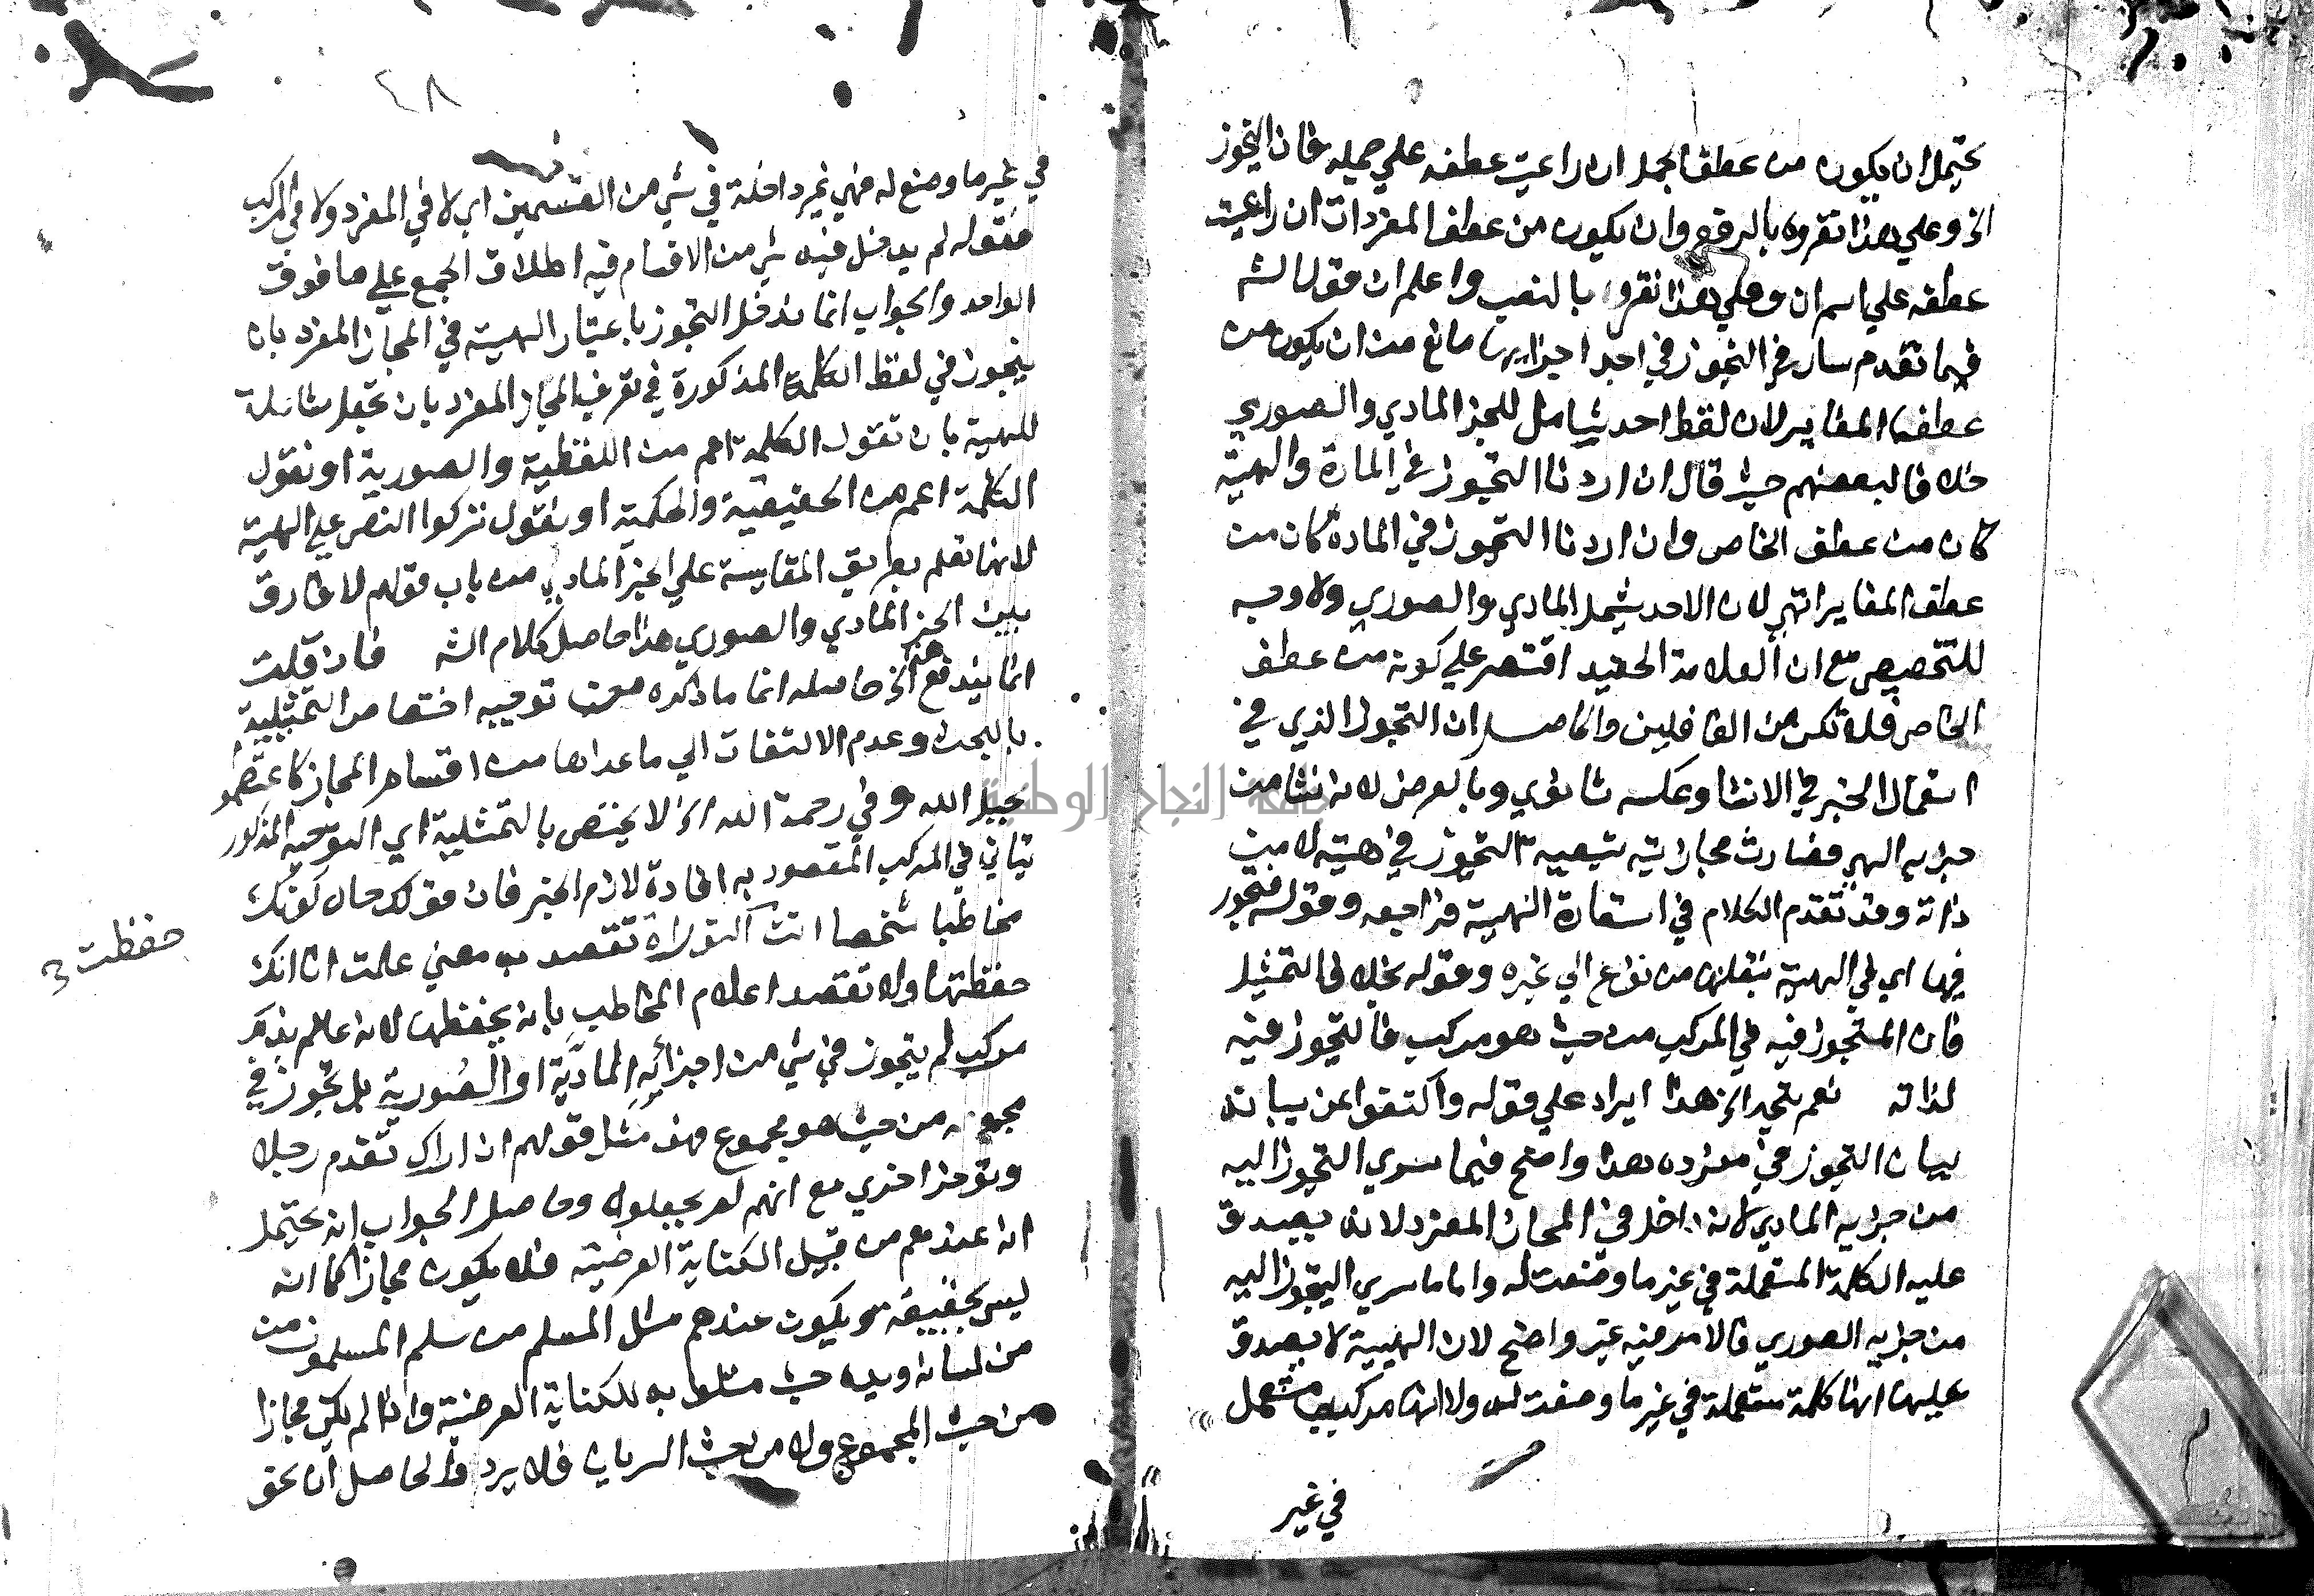 يحتمل ان يكون من عطف الجمل ان راعيت عطفه علي جملة فان التجوز
الخ وعلي هذا تقروه بالرفع وان يكون من عطف المفردات ان راعيت
عطفه علي اسم ان وعلي هذا تقروه بالنصب واعلم ان قول الش
فيما تقدم سار في التجوز في احد اجزايها مانع من ان يكون من
عطف المغاير لان لفظ احد شامل للجز المادي والصوري
خلافا لبعضهم حيث قال ان اردنا التجوز في المادة والهية
كان من عطف الخاص وان اردنا التجوز في المادة كان من
عطف المغاير انتهي لان الاحد يشمل المادي والصوري ولا وجه
للتخصيص مع ان العلامة الحفيد اقتصر علي كونه من عطف
الخاص فلا تكن من الغافلين والحاصل ان التجوز الذي في
استعمال الخبر في الانشا وعكسه ثانوي وبالعرض لانه نشا من
جزيه الهيي فصارت مجازيته بتبعية التجوز في هيته لا من
ذاته وقد تقدم الكلام في استعارة الهية فراجعه وقوله فتجوز
فيها اي في الهية بنقلها من نوع الي غيره وقوله بخلاف التمثيل
فان المتجوز فيه في المركب من حيث هو مركب فالتجوز فيه
لذاته نعم يتجه الخ هذا ايراد علي قوله واكتفوا عن بيانه
ببيان التجوز في مفرده هذا واضح فيما سري التجوز اليه
من جزيه المادي لانه داخل في المجاز المفرد لانه يصدق
عليه الكلمة المستعملة في غير ما وضعت له واما ما سري التجوز اليه
من جزيه الصوري فالامر فيه غير واضح لان الهيية لا يصدق
عليها انها كلمة مستعملة في غير ما وضعت له ولا انها مركب مستعمل
في غير
٤٨
في غير ما وضع له فهي غير داخلة في شي من القسمين اي لا في المفرد ولا في المركب
فقوله لم يدخل فيه شي من الاقسام فيه اطلاق الجمع علي ما فوق
الواحد والجواب انما يدخل التجوز باعتبار الهية في المجاز المفرد بان
يتجوز في لفظ الكلمة المذكورة في تعريف المجاز المفرد بان تجعل شاملة
للهية بان تقول الكلمة اعم من اللفظية والصورية او نقول
الكلمة اعم من الحقيقية والحكمية او نقول تركوا النص علي الهية
لانها تعلم بطريق المقايسة علي الجز المادي من باب قولهم لا فارق
بين الجز المادي والصوري هذا حاصل كلام الش فان قلت
انما يندفع الخ حاصله انما ما ذكره من توجيه اختصاص التمثيلية
بالبحث وعدم الالتفات الي ما عداها من اقسام المجاز كاعتصموا
بحبل الله وفي رحمة الله الخ لا يختص بالتمثيلية اي التوجيه المذكور
يتاتي في المركب المقصود به افادة لازم الخبر فان قولك حال كونك
مخاطبا شخصا انت التوراة تقصد به معني علمت انا انك
حفظت
حفظتها ولا تقصد اعلام المخاطب بانه يحفظها لانه عالم بذلك
مركب لم يتجوز في شي من اجزائه المادية او الصورية بل تجوز في
مجموعه من حيث هو مجموع فهو مثل قولهم اني اراك تقدم رجلا
وتوخر اخري مع انهم لم يجعلوه وحاصل الجواب انه يحتمل
انه عندهم من قبيل الكناية العرضية فلا يكون مجازا كما انه
ليس بحقيقة ويكون عندهم مثل المسلم من سلم المسلمون من
من لسانه ويده حيث مثلوا به للكناية العرضية واذا لم يكن مجازا
من حيث المجموع ولا من حيث السريان فلا يرد والحاصل ان حق
جامعة النجاح الوطنية